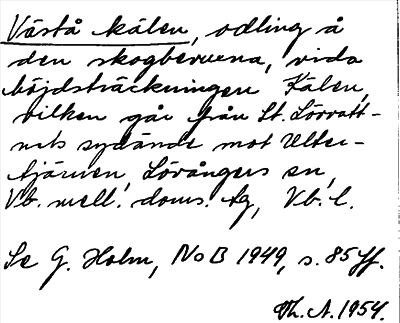 Västå kälen, odling å
den skogbevuxna, vida
höjdsträckningen Kälen,
vilken går från St. Lövvatt-
nets sydände mot Utter-
tjärnen, Lövångers sn,
Vb. mell. doms. tg, Vb. l.
Se G. Holm, NoB 1949, s. 85 ff.
Th. A. 1954.